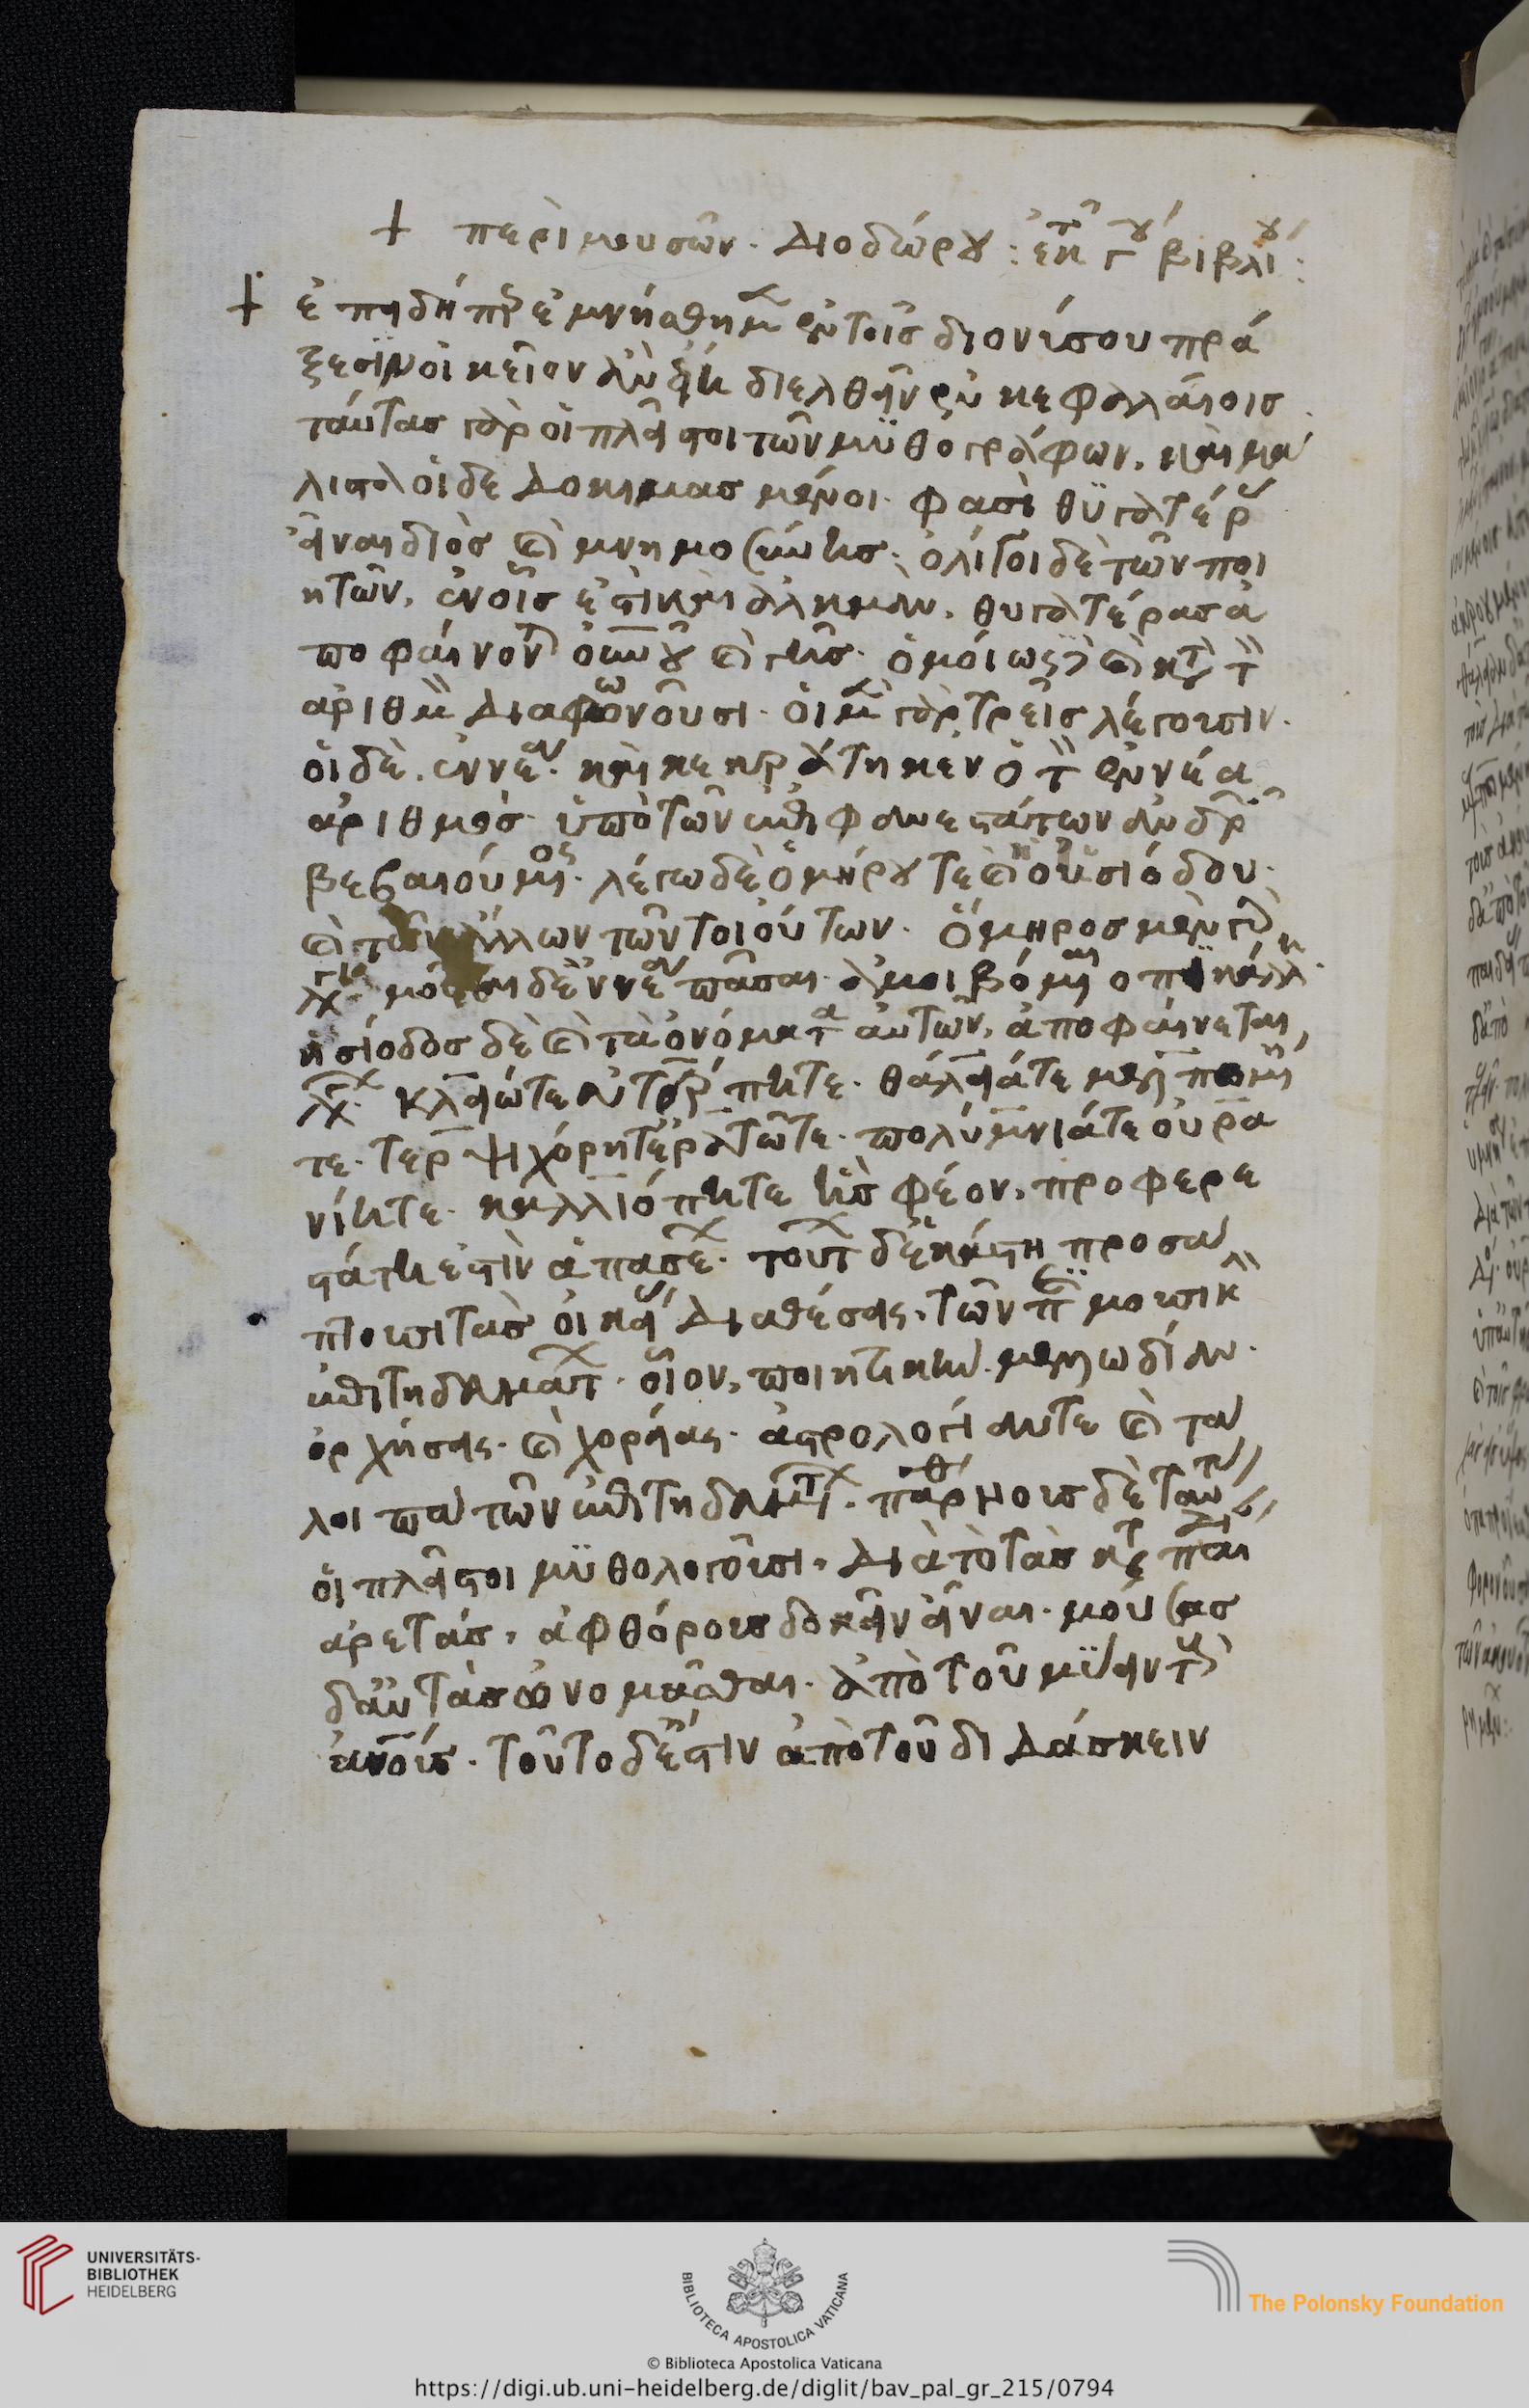 + περὶ μουσῶν. Διοδώρου: ἐκ τοῦ γου βιβλίου:
+ ἐπειδὴ περὶ ἐμνήσθημεν ἐν τοῖς διονύσου πρά
ξεσιν οἰκεῖον ἂν εἴη διελθεῖν ἐν κεφαλαίοις.
ταύτας γὰρ οἱ πλεῖστοι τῶν μϋθογράφων. καὶ μά
λιστα οἱ δεδοκιμασμένοι. φασὶ θϋγατέρας
εἶναι διὸς καὶ μνημοσύνης. ὀλίγοι δὲ τῶν ποι
ητῶν. ἐν οἷς ἐστὶ καὶ ἀλκμάν. θυγατέρας ἀ
ποφαίνονται οὐρανοῦ καὶ γῆς. ὁμοίως δὲ καὶ κατὰ τὸν
ἀριθμὸν διαφωνοῦσι. οἱ μὲν γὰρ τρεῖς λέγουσιν.
οἱ δὲ. ἐννέα. καὶ κεκράτηκεν ὁ τῶν ἐννέα
ἀριθμὸς. ὑπὸ τῶν ἐπιφανεστάτων ἀνδρῶν
βεβαιούμενος. λέγω δὲ ὁμήρου τε καὶ ἡσιόδου.
καὶ τῶν ἄλλων τῶν τοιούτων. ὅμηρος μὲν γὰρ
λέγει. μοῦσαι δ' ἐννέα πᾶσαι. ἀμοιβόμεναι ὀπὶ καλῆ.
ἡσίοδος δὲ καὶ τὰ ὀνόματα αὐτῶν. ἀποφαίνεται,
λέγων. κλειώτε εὐτέρπητε. θάλειάτε μελπομένη
τε. τερψιχόρητ' ἐρατῶτε. πολύμνιάτε οὐρα
νίητε. καλλιόπητε ἡ σφέον. προφερε
στάτη ἐστὶν ἁπασέων. τούτων δ' ἑκάστη προσά
πτουσι τὰς οἰκείας διαθέσεις. τῶν περὶ μουσικὴν
ἐπιτηδευμάτων. οἷον, ποιητικὴν. μελωδίαν.
ὀρχήσεις. καὶ χορείας. ἀστρολογίαν τε καὶ τὰ
λοιπὰ τῶν ἐπιτηδευμάτων. παρθένους δὲ ταύτας
οἱ πλεῖστοι μϋθολογοῦσι. διὰ τὸ τὰς κατὰ παιδείαν
ἀρετὰς. ἀφθόρους δοκεῖν εἶναι. μούσας
δ' αὐτὰς ὠνομάσθαι. ἀπὸ τοῦ μϋεῖν τοὺς
ἀνθρώπους. τοῦτο δ' ἐστὶν ἀπὸ τοῦ διδάσκειν
UNIVERSITÄTS-
BIBLIOTHEK
HEIDELBERG
BIBLIOTECA APOSTOLICA VATICANA
The Polonsky Foundation
© Biblioteca Apostolica Vaticana
https://digi.ub.uni-heidelberg.de/diglit/bav_pal_gr_215/0794